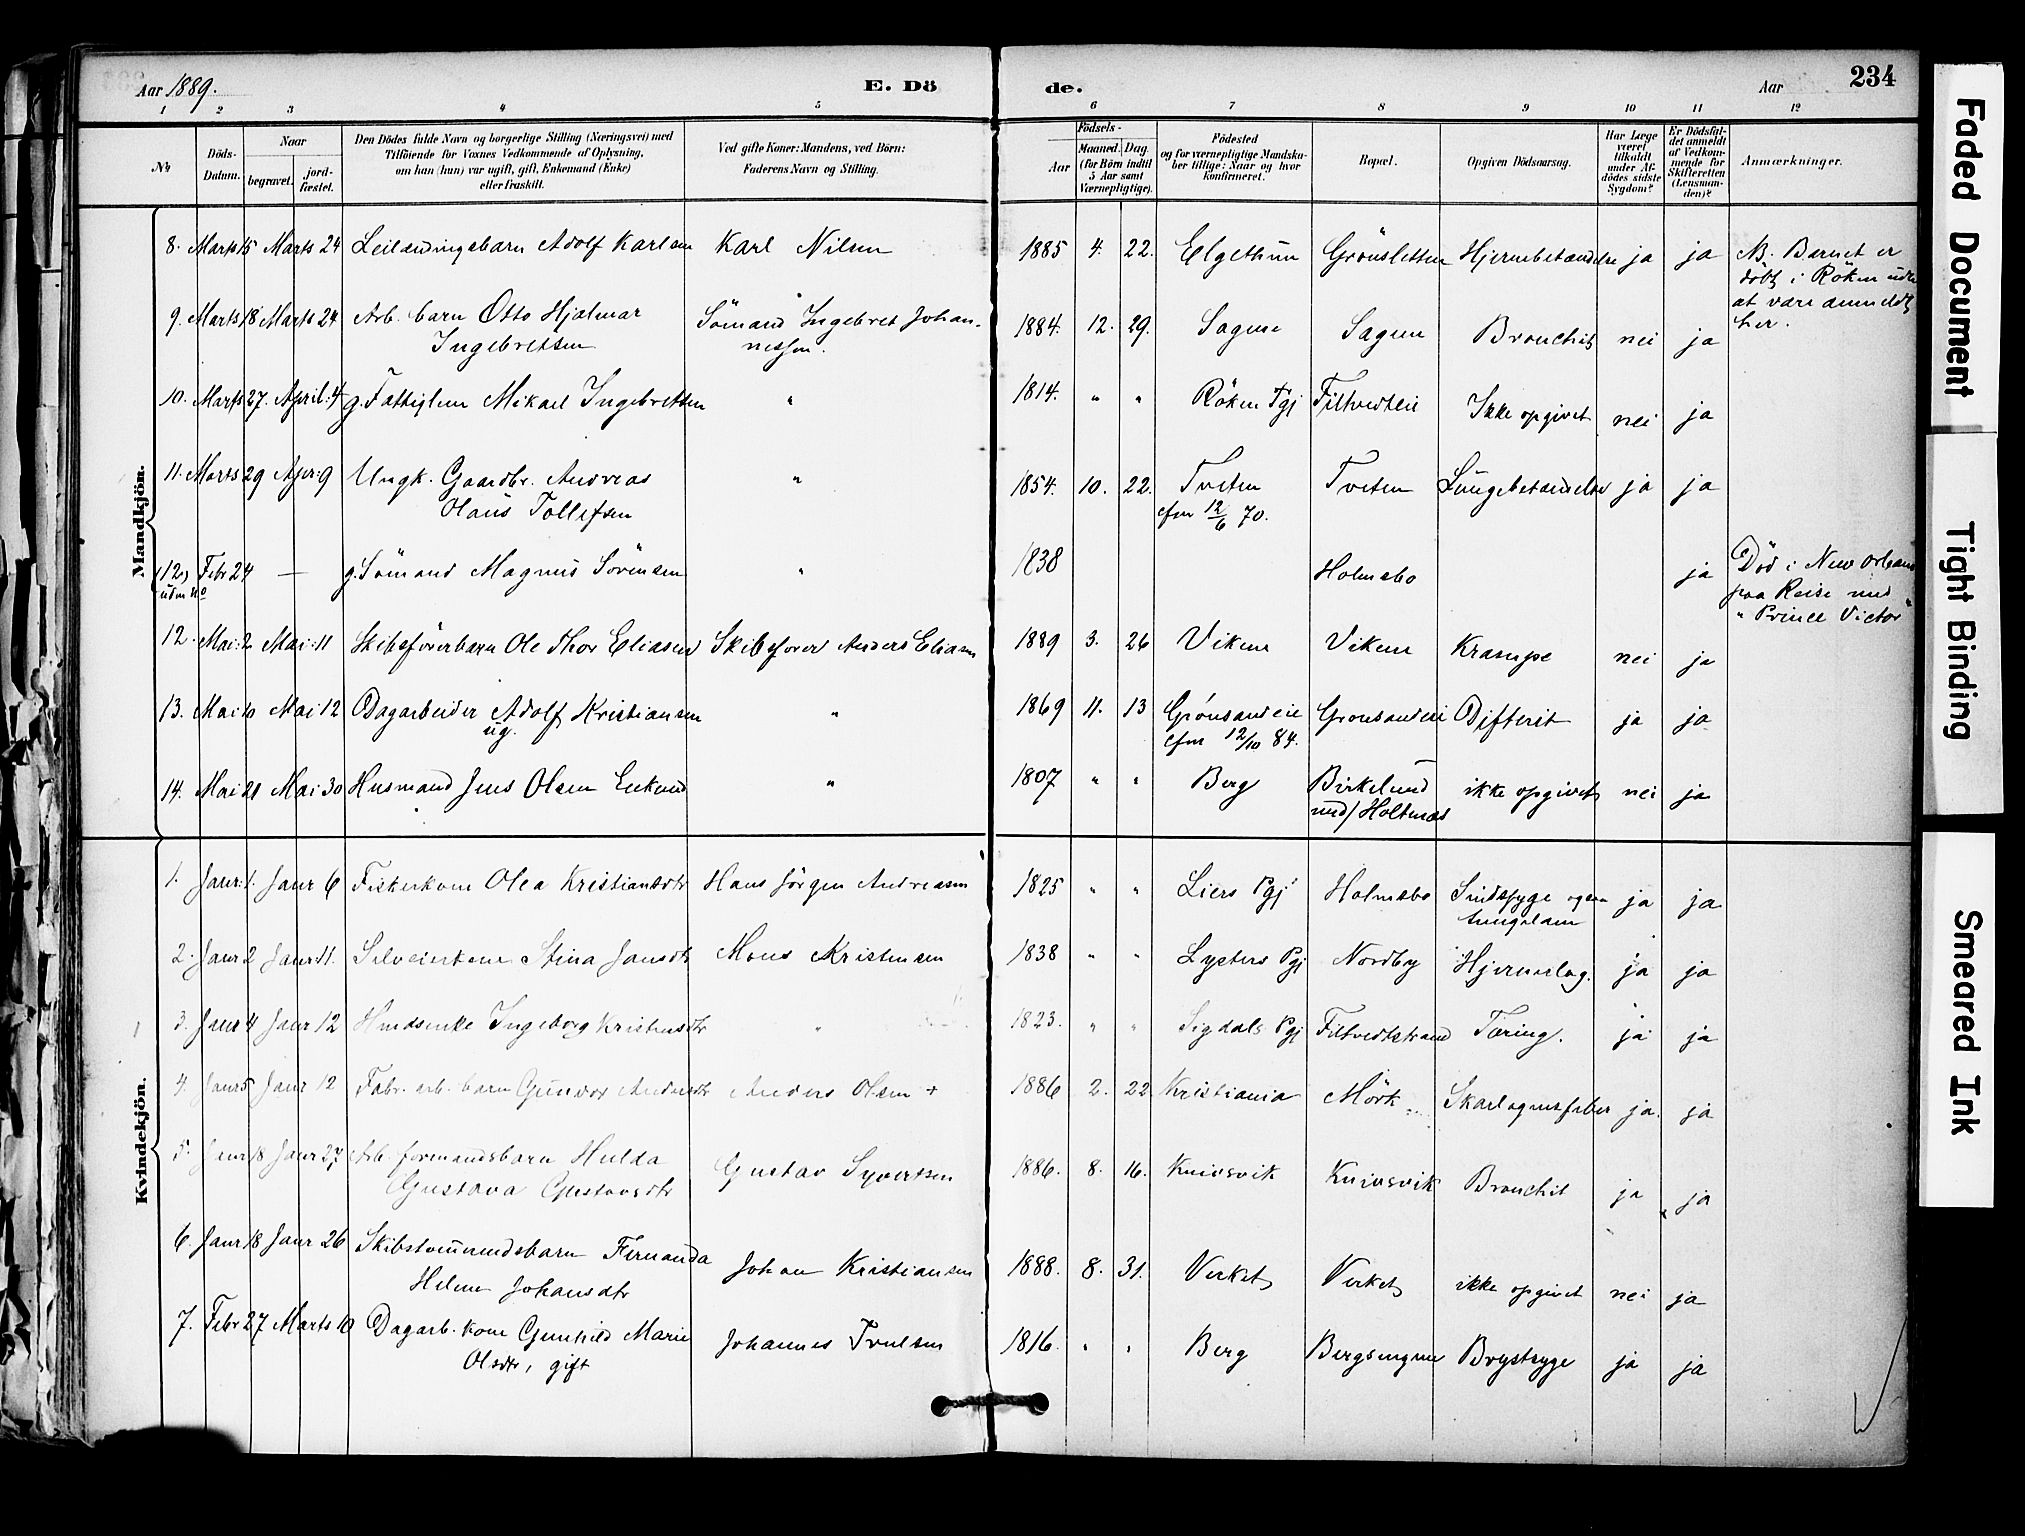 Aar 1889. E. Dö de. Aar 234
1 2 3 4 5 6 7 8 9 10 11 12
№ Döds-Datum. Naar begravet. jord-fæstet. Den Dödes fulde Navn og borgerlige Stilling (Næringsvei) med Tilföiende for Voxnes Vedkommende af Oplysning, om han (hun) var ugift, gift, Enkemand (Enke) eller fraskilt. Ved gifte Koner: Mandens, ved Börn: Faderens Navn og Stilling. Födsels- Aar Maaned. Dag. (for Börn indtil 5 Aar samt Værnepligtige). Födested og for værnepligtige Mandskaber tillige: Naar og hvor konfirmeret. Bopæl. Opgiven Dödsaarsag. Har Læge været tilkaldt under Afdödes sidste Sygdom? Er Dödsfaldet anmeldt af Vedkommende for Skifteretten (Lensmanden)? Anmærkninger.
Mandkjön.
8. Marts 15 Marts 24 Leilændingsbarn Adolf Karlsen Karl Nilsen 1885 4. 22. Elgethun Grönsletten Hjernebetændelse ja ja NB. Barnet er
dödt i Röken uden
at være anmeldt
her.
9. Marts 18 Marts 24 Arb. barn Otto Hjalmar Sömand Ingebret Johan- 1884. 12. 29. Sagene Sagene Bronchit nei ja
Ingebretsen nessen.
10. Marts 27. April: 4 g. Fattiglem Mikael Ingebretsen " 1814. " " Röken Pgj Filtvedteie Ikke opgivet nei ja
11. Marts 29 Apr: 9 Ungk. Gaardbr. Andreas " 1854. 10. 22. Tveten Tveten Lungebetændelse ja ja
Olaus Tollefsen cfm 12/6 70.
(12) Febr 24 — g. Sömand Magnus Sörensen " 1838 Holmsbo ja Död i New Orleans
uden No paa Reise med
"Prince Victor"
12. Mai: 2 Mai: 11 Skibsförerbarn Ole Thor Eliasen Skibsförer Anders Eliasen 1889 3. 26 Viken Viken Krampe nei ja
13. Mai 10 Mai 12 Dagarbeider Adolf Kristiansen " 1869 11. 13 Grønsandeie Gronsandeie Difterit ja ja
ug. cfm 12/10 84.
14. Mai 21 Mai 30 Husmand Jens Olsen Enkemd " 1807 " " Berg Birkelund ikke opgivet nei ja
und/ Holtnæs
Kvindekjön.
1. Janr: 1. Janr 6 Fiskerkone Olea Kristiansdtr Hans Jörgen Andreasen 1825 " " Liers Pgj Holmsbo Sindssyge ogsaa ja ja
2. Janr 2 Janr 11. Selveierkone Stina Jansdtr Mons Kristensen 1838 " " Lysters Pgj Nordby Hjerneslag. ja ja
3. Janr 4 Janr 12 Husdsenke Ingeborg Kristensdtr " 1823. " " Sigdals Pgj Filtvedtstrand Tæring. ja ja
4. Janr 5 Janr 12 Fabr. arb. barn Gunvor Andersdtr Anders Olsen + 1886 2. 22 Kristiania Mörk Skarlagensfeber ja. ja
5. Janr 18 Janr 27 Arb. formandsbarn Hulda Gustav Syvertsen 1886. 8. 16. Knivsvik Knivsvik Bronchit ja ja
Gustava Gustavsdtr
6. Janr 18 Janr 26 Skibstömmmdsbarn Fernanda Johan Kristiansen 1888. 8. 31. Verket Verket ikke opgivet nei ja
Helene Johansdtr
7. Febr 27 Marts 10 Dagarb. kone Gunhild Marie Johannes Truelsen 1816. " " Berg Bergsengene Brystsyge ja ja
Olsdtr, gift
Faded Document
Tight Binding
Smeared Ink